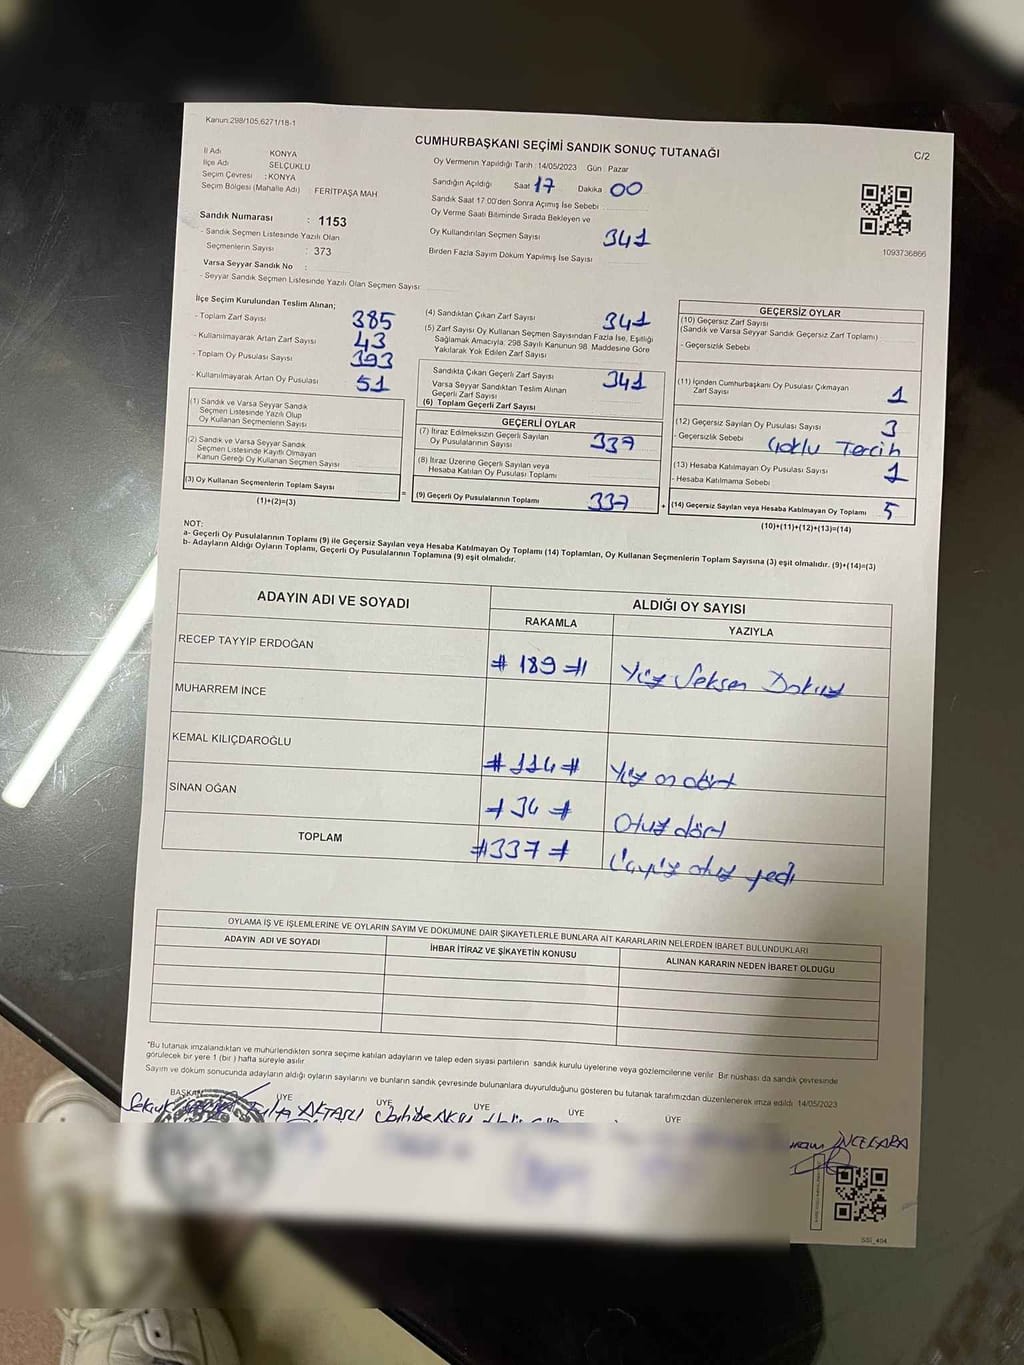 Kanun:298/105,6271/18-1
CUMHURBAŞKANI SEÇİMİ SANDIK SONUÇ TUTANAĞI
C/2
İl Adı KONYA
İlçe Adı SELÇUKLU
Seçim Çevresi : KONYA
Seçim Bölgesi (Mahalle Adı) : FERİTPAŞA MAH
Oy Vermenin Yapıldığı Tarih : 14/05/2023 Gün : Pazar
Sandığın Açıldığı Saat 17 Dakika 00
Sandık Saat 17:00'den Sonra Açımış İse Sebebi
Oy Verme Saati Bitiminde Sırada Bekleyen ve
Oy Kullandırılan Seçmen Sayısı 341
Birden Fazla Sayım Döküm Yapılmış İse Sayısı
1093736866
Sandık Numarası : 1153
- Sandık Seçmen Listesinde Yazılı Olan
Seçmenlerin Sayısı : 373
Varsa Seyyar Sandık No :
- Seyyar Sandık Seçmen Listesinde Yazılı Olan Seçmen Sayısı
İlçe Seçim Kurulundan Teslim Alınan;
- Toplam Zarf Sayısı 385
- Kullanılmayarak Artan Zarf Sayısı 43
- Toplam Oy Pusulası Sayısı 393
- Kullanılmayarak Artan Oy Pusulası 51
(1) Sandık ve Varsa Seyyar Sandık
Seçmen Listesinde Yazılı Olup
Oy Kullanan Seçmenlerin Sayısı
(2) Sandık ve Varsa Seyyar Sandık
Seçmen Listesinde Kayıtlı Olmayan
Kanun Gereği Oy Kullanan Seçmen Sayısı
(3) Oy Kullanan Seçmenlerin Toplam Sayısı
(1)+(2)=(3)
(4) Sandıktan Çıkan Zarf Sayısı 341
(5) Zarf Sayısı Oy Kullanan Seçmen Sayısından Fazla İse, Eşitliği
Sağlamak Amacıyla; 298 Sayılı Kanunun 98. Maddesine Göre
Yakılarak Yok Edilen Zarf Sayısı
Sandıkta Çıkan Geçerli Zarf Sayısı 341
Varsa Seyyar Sandıktan Teslim Alınan
Geçerli Zarf Sayısı
(6) Toplam Geçerli Zarf Sayısı
GEÇERLİ OYLAR
(7) İtiraz Edilmeksizin Geçerli Sayılan
Oy Pusulalarının Sayısı 337
(8) İtiraz Üzerine Geçerli Sayılan veya
Hesaba Katılan Oy Pusulası Toplamı
= (9) Geçerli Oy Pusulalarının Toplamı 337
GEÇERSİZ OYLAR
(10) Geçersiz Zarf Sayısı
(Sandık ve Varsa Seyyar Sandık Geçersiz Zarf Toplamı)
- Geçersizlik Sebebi
(11) İçinden Cumhurbaşkanı Oy Pusulası Çıkmayan
Zarf Sayısı 1
(12) Geçersiz Sayılan Oy Pusulası Sayısı 3
- Geçersizlik Sebebi Çoklu Tercih
(13) Hesaba Katılmayan Oy Pusulası Sayısı 1
- Hesaba Katılmama Sebebi
+ (14) Geçersiz Sayılan veya Hesaba Katılmayan Oy Toplamı 5
(10)+(11)+(12)+(13)=(14)
NOT:
a- Geçerli Oy Pusulalarının Toplamı (9) ile Geçersiz Sayılan veya Hesaba Katılmayan Oy Toplamı (14) Toplamları, Oy Kullanan Seçmenlerin Toplam Sayısına (3) eşit olmalıdır. (9)+(14)=(3)
b- Adayların Aldığı Oyların Toplamı, Geçerli Oy Pusulalarının Toplamına (9) eşit olmalıdır.
ADAYIN ADI VE SOYADI
ALDIĞI OY SAYISI
RAKAMLA YAZIYLA
RECEP TAYYİP ERDOĞAN # 189 # Yüz Seksen Dokuz
MUHARREM İNCE
KEMAL KILIÇDAROĞLU # 114 # Yüz on dört
SİNAN OĞAN # 34 # Otuz dört
TOPLAM # 337 # Üçyüz otuz yedi
OYLAMA İŞ VE İŞLEMLERİNE VE OYLARIN SAYIM VE DÖKÜMÜNE DAİR ŞİKAYETLERLE BUNLARA AİT KARARLARIN NELERDEN İBARET BULUNDUKLARI
ADAYIN ADI VE SOYADI İHBAR İTİRAZ VE ŞİKAYETİN KONUSU ALINAN KARARIN NEDEN İBARET OLDUĞU
*Bu tutanak imzalandıktan ve mühürlendikten sonra seçime katılan adayların ve talep eden siyasi partilerin sandık kurulu üyelerine veya gözlemcilerine verilir. Bir nüshası da sandık çevresinde
görülecek bir yere 1 (bir ) hafta süreyle asılır.
Sayım ve döküm sonucunda adayların aldığı oyların sayılarını ve bunların sandık çevresinde bulunanlara duyurulduğunu gösteren bu tutanak tarafımızdan düzenlenerek imza edildi. 14/05/2023
BAŞKAN ÜYE ÜYE ÜYE ÜYE ÜYE
AKTARI
İNCEKARA
SSI_404